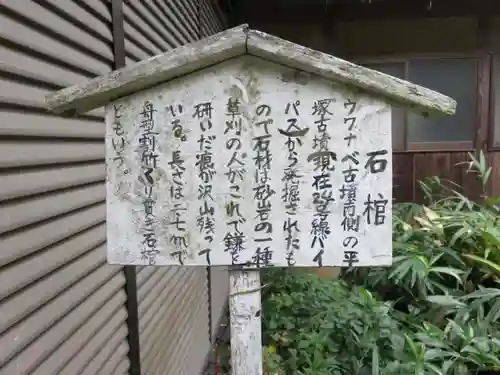 石棺
ウワナベ古墳南側の平
塚古墳現在24号線バイ
パスから発掘されたも
ので石材は砂岩の一種
草刈の人がこれで鎌を
研いだ痕が沢山残って
いる。長さは二七〇糎で
舟型割竹くり貫き石棺
ともいう。